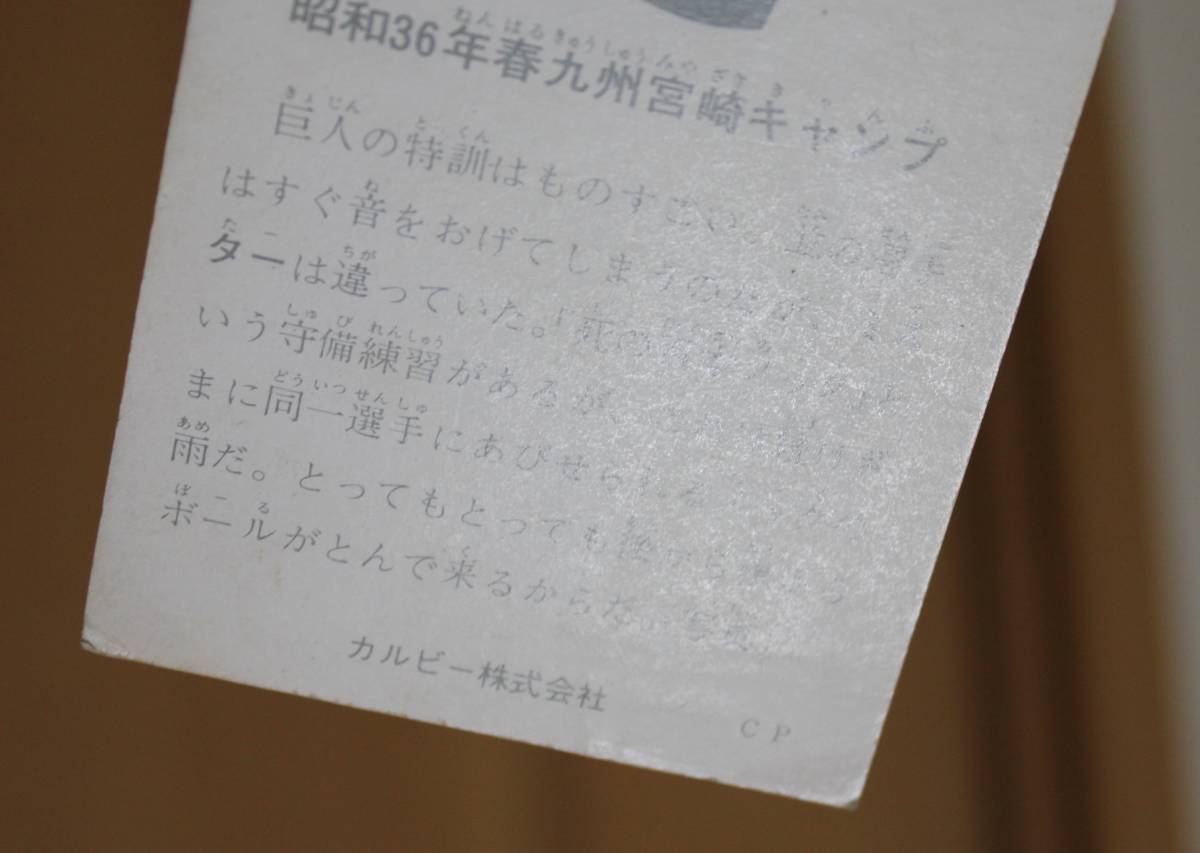 昭和36年春九州宮崎キャンプ
巨人の特訓はものすごい。並の選手
はすぐ音をおげてしまうのだが、
ターは違っていた。「死の
いう守備練習があるが、
まに同一選手にあびせられる
雨だ。とってもとっても後から後から
ボールがとんで来るからだ。写真
カルビー株式会社
CP